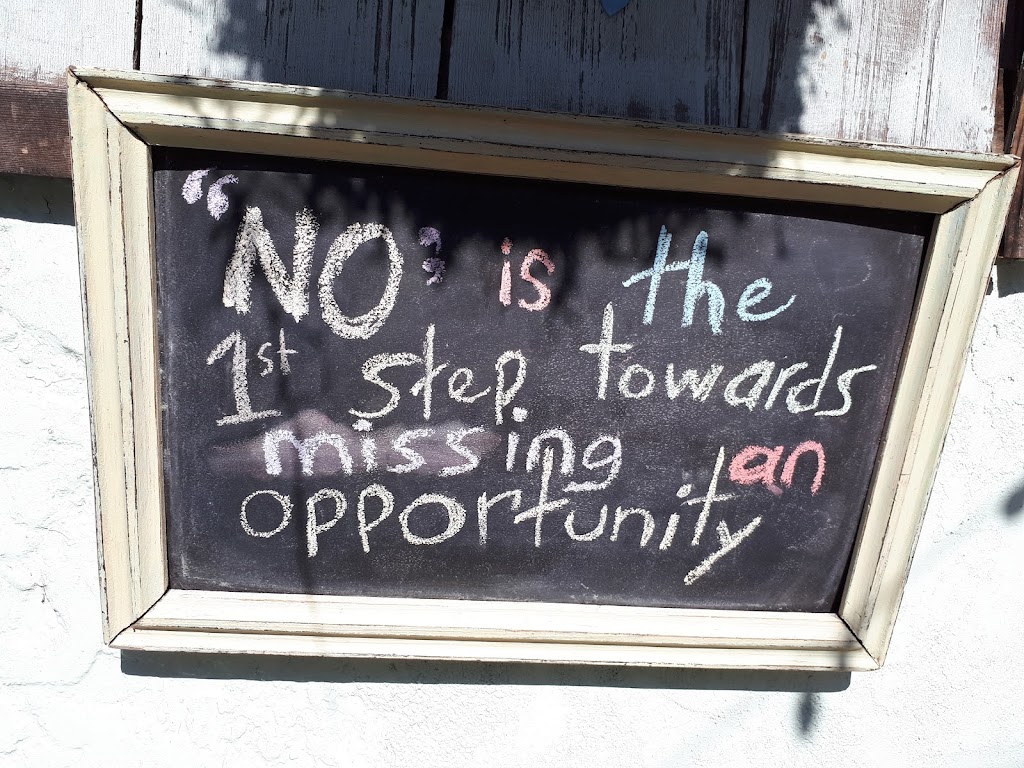 “NO” is the
1st step towards
missing an
opportunity